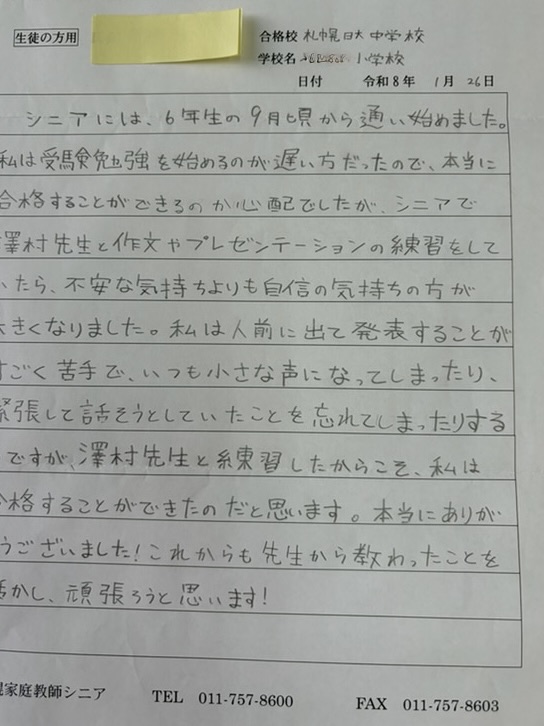 生徒の方用
合格校 札幌日大中学校
学校名 小学校
日付 令和8年 1月 26日
シニアには、6年生の9月頃から通い始めました。
私は受験勉強を始めるのが遅い方だったので、本当に
合格することができるのか心配でしたが、シニアで
澤村先生と作文やプレゼンテーションの練習をして
いたら、不安な気持ちよりも自信の気持ちの方が
大きくなりました。私は人前に出て発表することが
すごく苦手で、いつも小さな声になってしまったり、
緊張して話そうとしていたことを忘れてしまったりする
ですが、澤村先生と練習したからこそ、私は
合格することができたのだと思います。本当にありが
うございました!これからも先生から教わったことを
活かし、頑張ろうと思います!
家庭教師シニア TEL 011-757-8600 FAX 011-757-8603